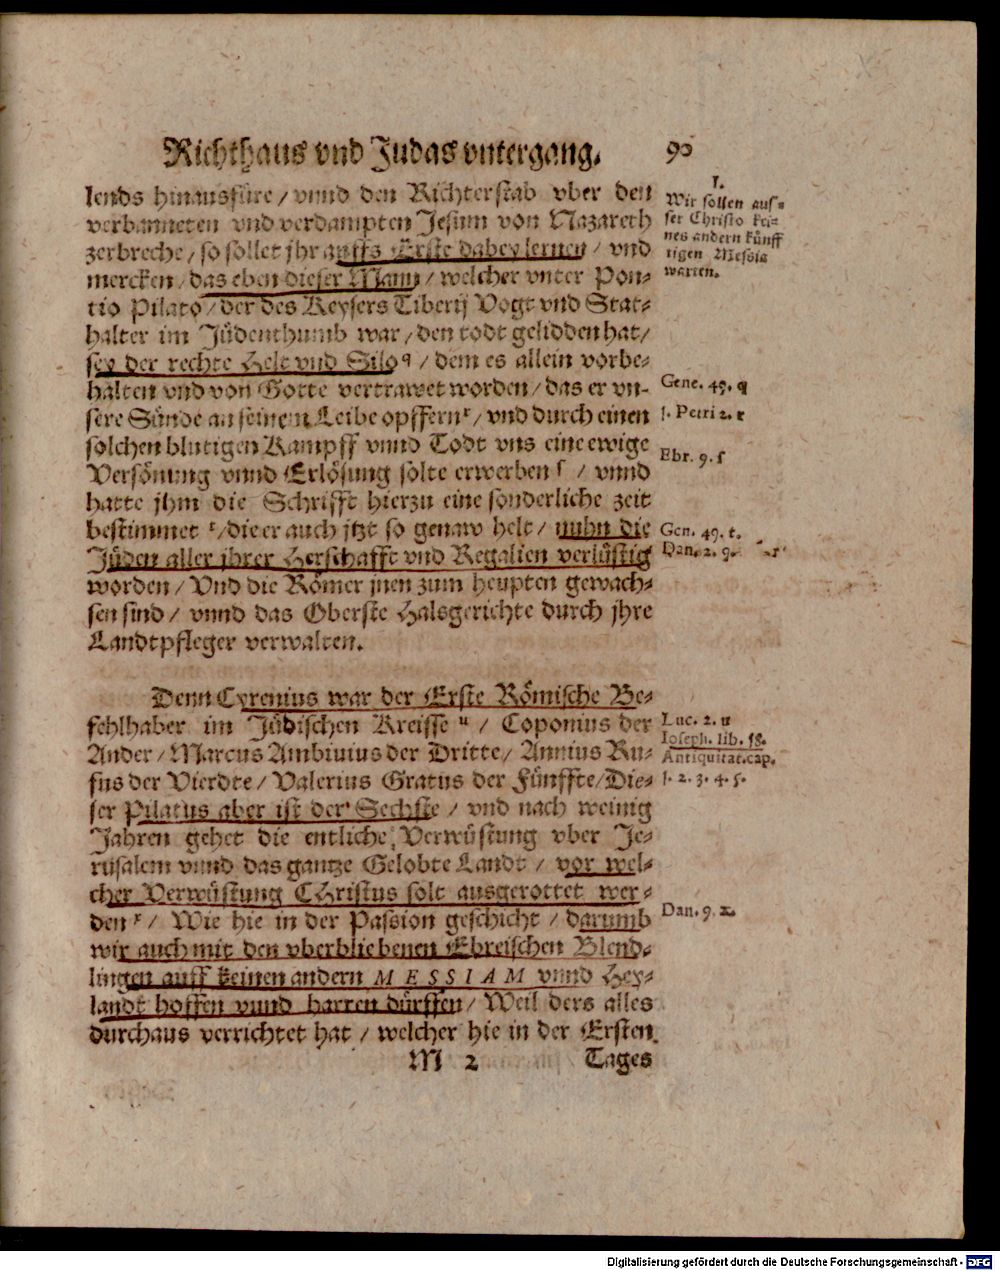 Richthaus vnd Judas vntergang. 90
lends hinausfüre / vnnd den Richterstab vber den
verbanneten vnd verdampten Jesum von Nazareth
zerbreche / so sollet jhr auffs Erste dabey lernen / vnd
mercken / das eben dieser Mann / welcher vnter Pon-
tio Pilato / der des Keysers Tiberij Vogt vnd Stat-
halter im Jüdenthumb war / den todt gelidden hat /
sey der rechte Helt vnd Silo q / dem es allein vorbe-
halten vnd von Gotte vertrawet worden / das er vn-
sere Sünde an seinem Leibe opffern r / vnd durch einen
solchen blutigen Kampff vnnd Todt vns eine ewige
Versönung vnnd Erlösung solte erwerben s / vnnd
hatte jhm die Schrifft hierzu eine sonderliche zeit
bestimmet t / die er auch jtzt so genaw helt / nuhn die
Jüden aller jhrer Herschafft vnd Regalien verlüstig
worden / Vnd die Römer jnen zum heupten gewach-
sen sind / vnnd das Oberste Halsgerichte durch jhre
Landtpfleger verwalten.
Denn Cyrenius war der Erste Römische Be-
fehlhaber im Jüdischen Kreisse u / Coponius der
Ander / Marcus Ambiuius der Dritte / Annius Ru-
fus der Vierdte / Valerius Gratus der Fünffte / Die-
ser Pilatus aber ist der Sechste / vnd nach weinig
Jahren gehet die entliche Verwüstung vber Je-
rusalem vnnd das gantze Gelobte Landt / vor wel-
cher Verwüstung CHristus solt ausgerottet wer-
den x / Wie hie in der Passion geschicht / darumb
wir auch mit den vberbliebenen Ebreischen Blend-
lingen auff keinen andern MESSIAM vnnd Hey-
landt hoffen vnnd harren dürffen / Weil ders alles
durchaus verrichtet hat / welcher hie in der Ersten
M 2 Tages
1.
Wir sollen aus-
ser Christo kei-
nes andern künff
tigen Messia
warten.
Gene. 49. q
1. Petri 2. r
Ebr. 9. s
Gen. 49. t.
Dan. 2. 9.
Luc. 2. u
Ioseph. lib. 18.
Antiquitat. cap.
1. 2. 3. 4. 5.
Dan. 9. x.
Digitalisierung gefördert durch die Deutsche Forschungsgemeinschaft - DFG